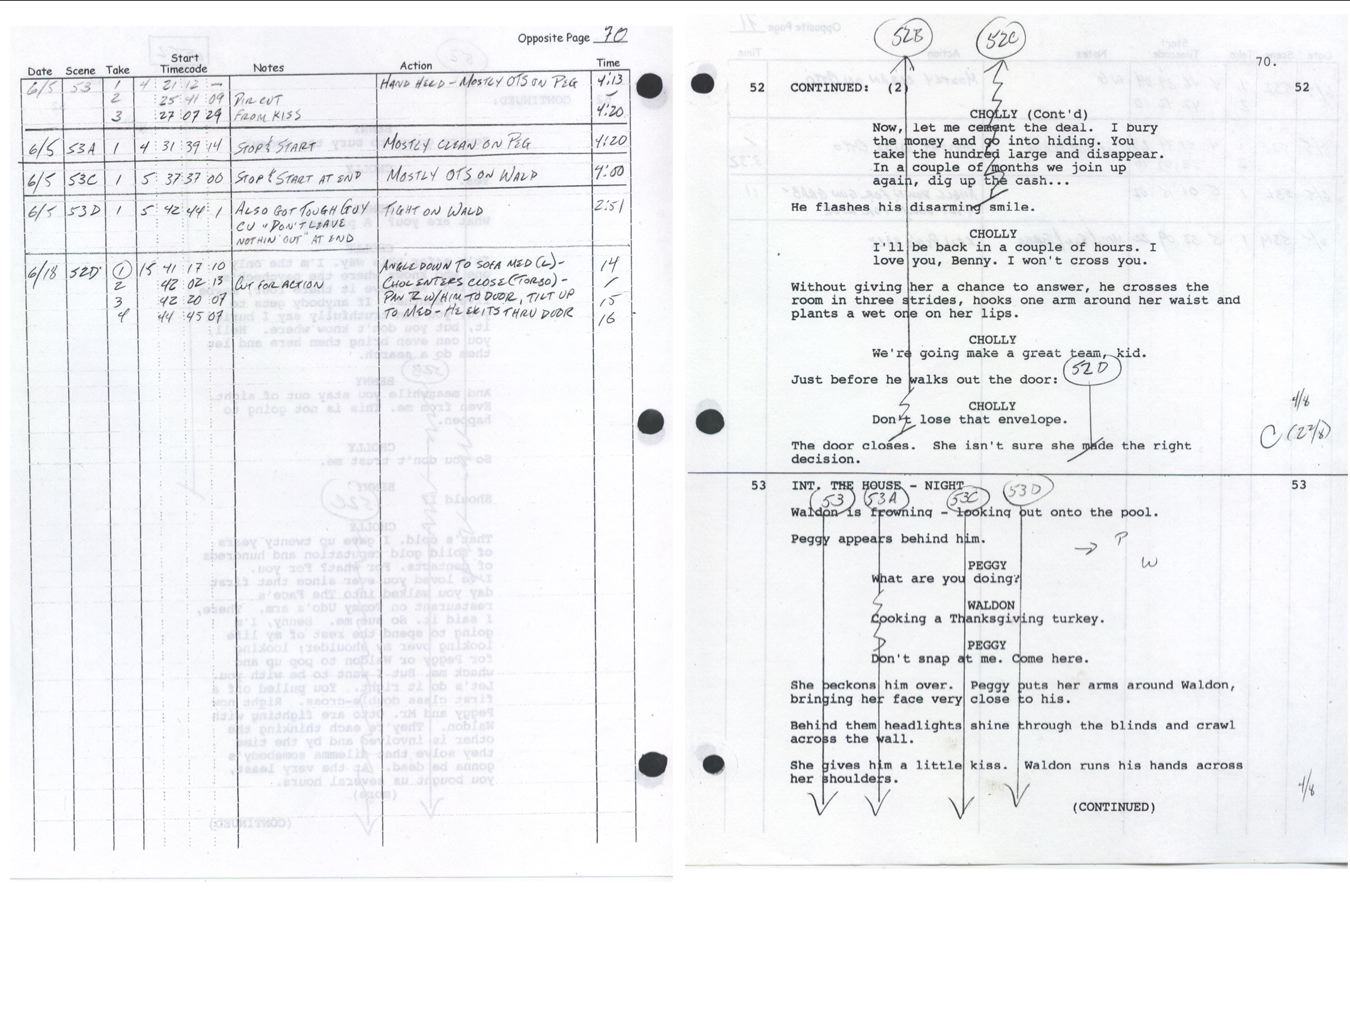 Opposite Page 70
Date Scene Take Start Timecode Notes Action Time
6/5 53 1 4 21 12 — HAND HELD - MOSTLY OTS ON PEG 4:13
2 25 41 09 DIR CUT –
3 27 07 29 FROM KISS 4:20
6/5 53A 1 4 31 39 14 STOP & START MOSTLY CLEAN ON PEG 4:20
6/5 53C 1 5 37 37 00 STOP & START AT END MOSTLY OTS ON WALD
6/5 53D 1 5 42 44 1 ALSO GOT TOUGH GUY TIGHT ON WALD 2:51
CU "DON'T LEAVE
NOTHIN' OUT" AT END
6/18 52D 1 15 41 17 10 ANGLE DOWN TO SOFA MED (L) - 14
2 42 02 13 CUT FOR ACTION CHOL ENTERS CLOSE (TORSO) - /
3 42 20 07 PAN R W/ HIM TO DOOR, TILT UP 15
4 44 45 07 TO MED - HE EXITS THRU DOOR 16
52B 52C
70.
52 CONTINUED: (2) 52
CHOLLY (Cont'd)
Now, let me cement the deal. I bury
the money and go into hiding. You
take the hundred large and disappear.
In a couple of months we join up
again, dig up the cash...
He flashes his disarming smile.
CHOLLY
I'll be back in a couple of hours. I
love you, Benny. I won't cross you.
Without giving her a chance to answer, he crosses the
room in three strides, hooks one arm around her waist and
plants a wet one on her lips.
CHOLLY
We're going make a great team, kid.
52D
Just before he walks out the door:
CHOLLY
Don't lose that envelope.
4/8
C (2 2/8)
The door closes. She isn't sure she made the right
decision.
53 INT. THE HOUSE - NIGHT 53
53 53A 53C 53D
Waldon is frowning - looking out onto the pool.
Peggy appears behind him.
→ P
W
PEGGY
What are you doing?
WALDON
Cooking a Thanksgiving turkey.
PEGGY
Don't snap at me. Come here.
She beckons him over. Peggy puts her arms around Waldon,
bringing her face very close to his.
Behind them headlights shine through the blinds and crawl
across the wall.
She gives him a little kiss. Waldon runs his hands across
her shoulders.
4/8
(CONTINUED)